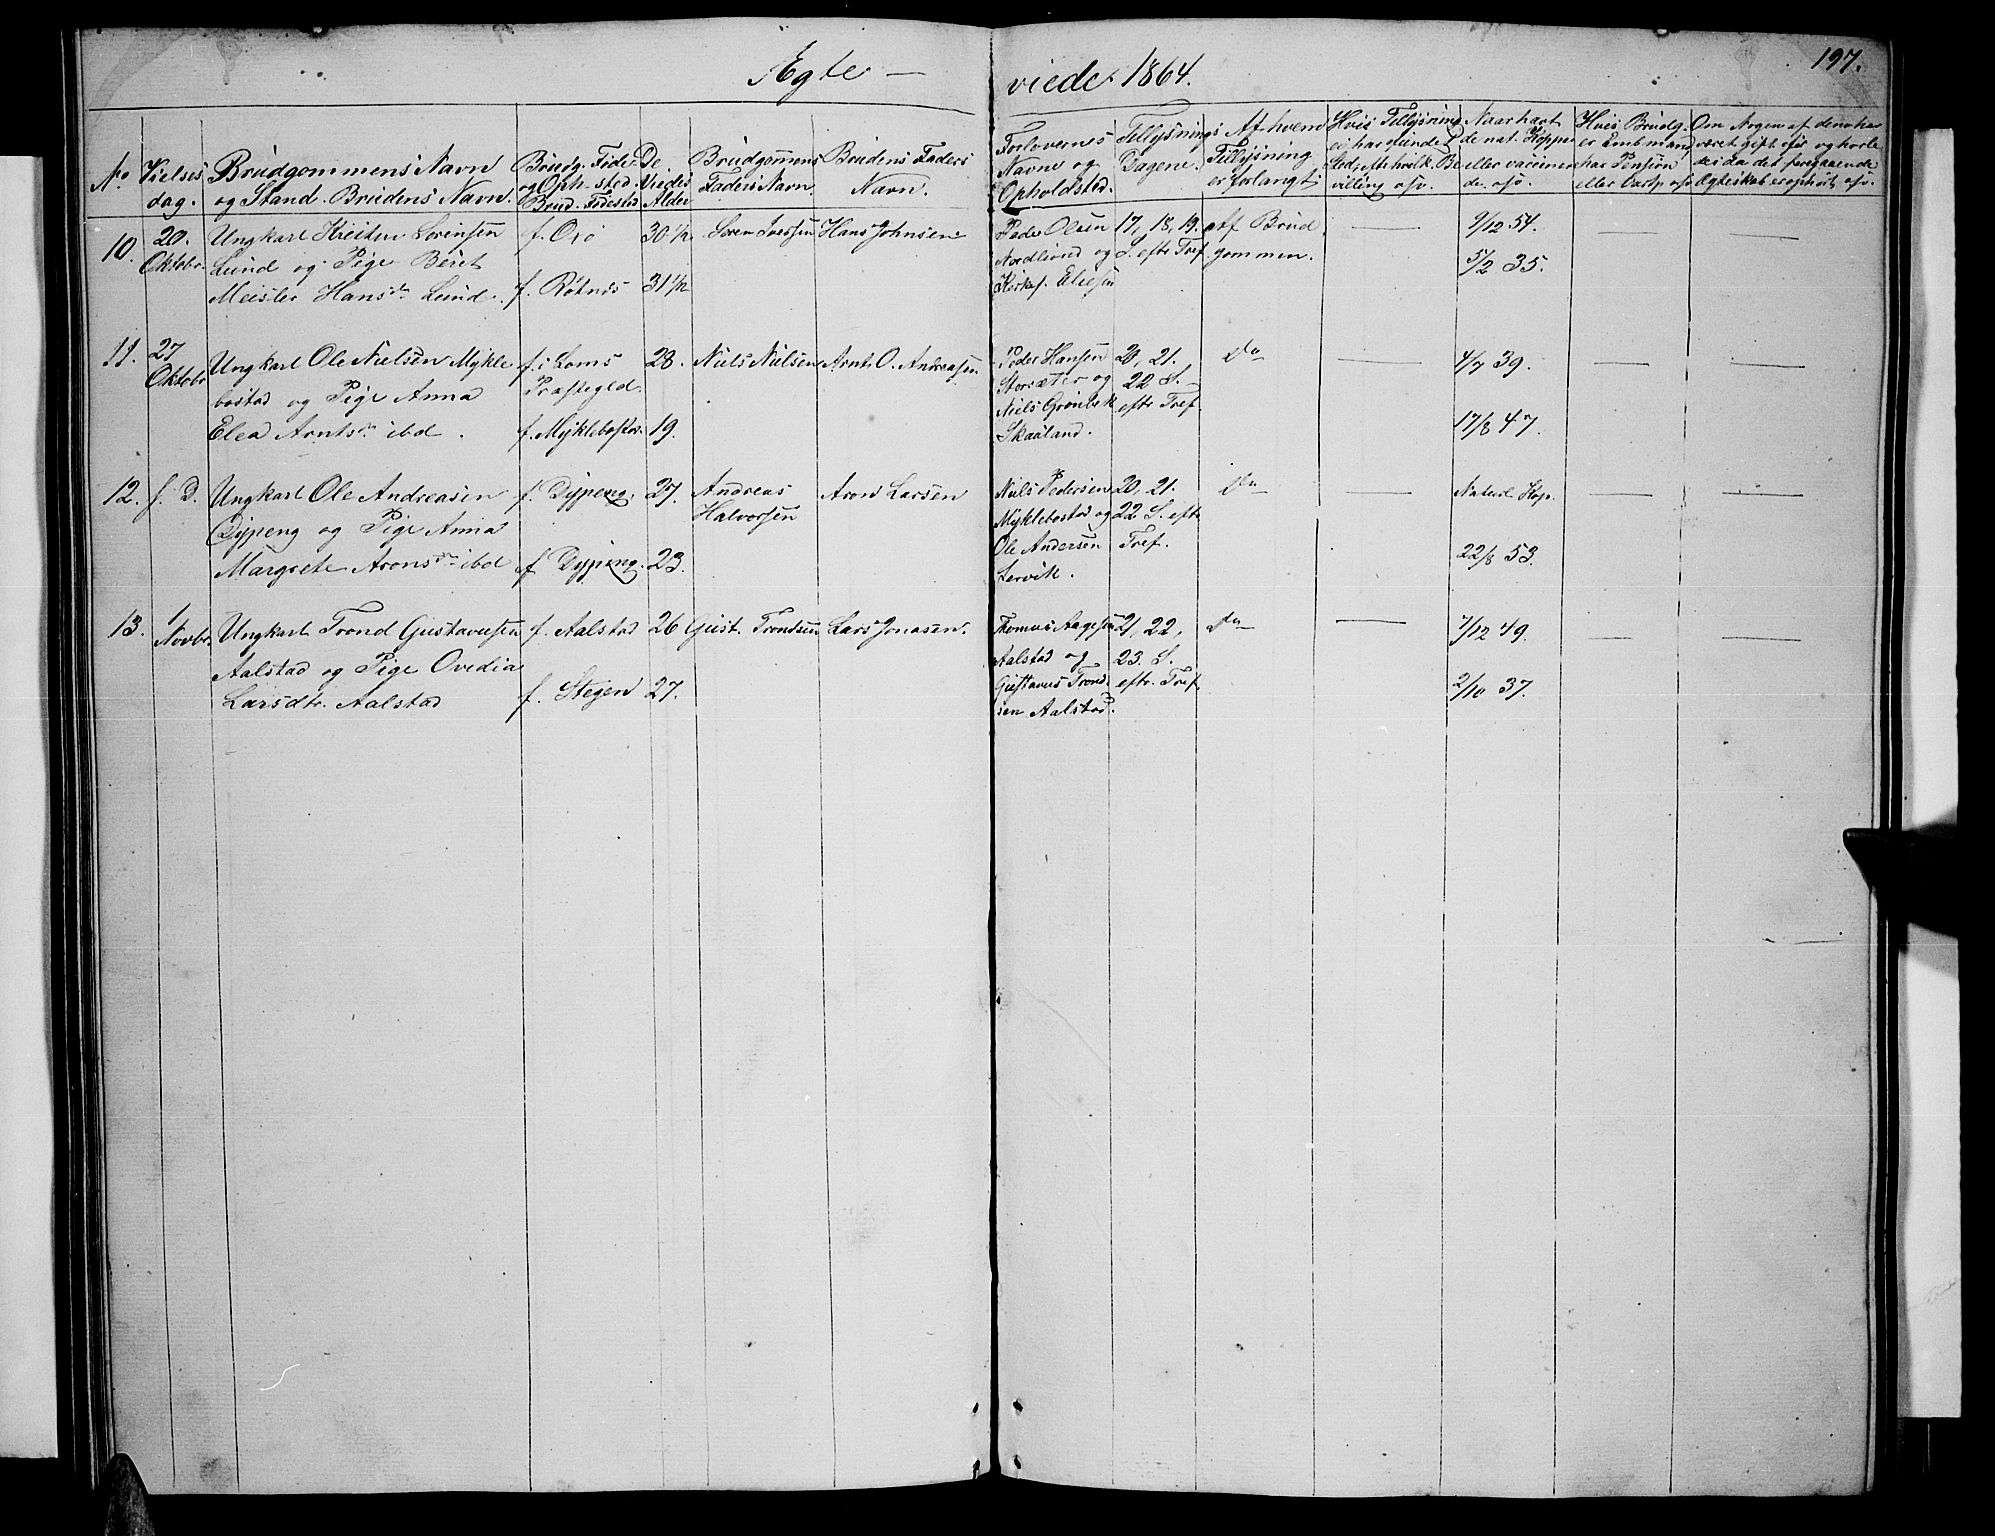 197.
Ægte — viede 1864.
No
Vielses
dag.
Brudgommens Navn
og Stand. Brudens Navn.
Brudg. Føde
og Oph. sted.
Brud. Fødested
De
Viedes
Alder
Brudgommens
Faders Navn.
Brudens Faders
Navn.
Forlovernes
Navne og
Opholdsted.
Tillysnings
Dagene.
Af hvem
Tillysning
er forlangt
Hvis Tillysning
ei har fundet
Sted, Af hvilk. Be
villing osv.
Naar havt
de nat. Kopper
eller vaccine
de. osv.
Hvis Brudg.
er Embmand,
har Pension
eller osv
Om Nogen af dem har
været gift før og hvorle
des da det foregaaende
Ægteskab er ophørt osv.
10.
20.
Oktobr.
Ungkarl Sørensen
Lund og Pige Beret
Meister Hansdr Lund.
f.
f. Røtnes
30 1/2
31 1/2
Søren Iversen
Hans Johnsen
Peder Olsen
Nordlund og
Eliesen
17, 18, 19.
S. eftr Tref
Af Brud
gommen.
—
9/12 54.
5/2 35.
—
—
11.
27
Oktobr
Ungkarl Ole Nielsen Mykle
bostad og Pige Anna
Elea Arntsdr ibd.
f. i Loms
Præstegld.
f. Myklebostad.
28.
19.
Niels Nielsen
Arnt O. Andreasen
Peder Hansen
Storsæter og
Niels Grønbek
Skaaland.
20, 21.
22 S.
eftr Tref.
Do
—
4/7 39.
17/8 47.
—
—
12.
s. D.
Ungkarl Ole Andreasen
Dypeng og Pige Anna
Margrete Aronsdr ibd
f. Dypeng.
f. Dypeng.
27.
23.
Andreas
Halvorsen
Aron Larsen
Niels Pedersen
Myklebostad og
Ole Andersen
Lervik.
20, 21.
22 S. eftr
Tref.
Do
—
Naturl Kop.
22/8 53.
—
—
13.
1
Novbr.
Ungkarl Trond Gustavusen
Aalstad og Pige Ovedia
Larsdtr. Aalstad
f. Aalstad
f. Stegen
26
27.
Gust. Trondsen
Lars Jonasen.
Thomas Aagesen
Aalstad og
Gustavus Trond
sen Aalstad.
21, 22,
23. S.
eftr. Tref.
Do
—
7/12 49.
2/10 37.
—
—